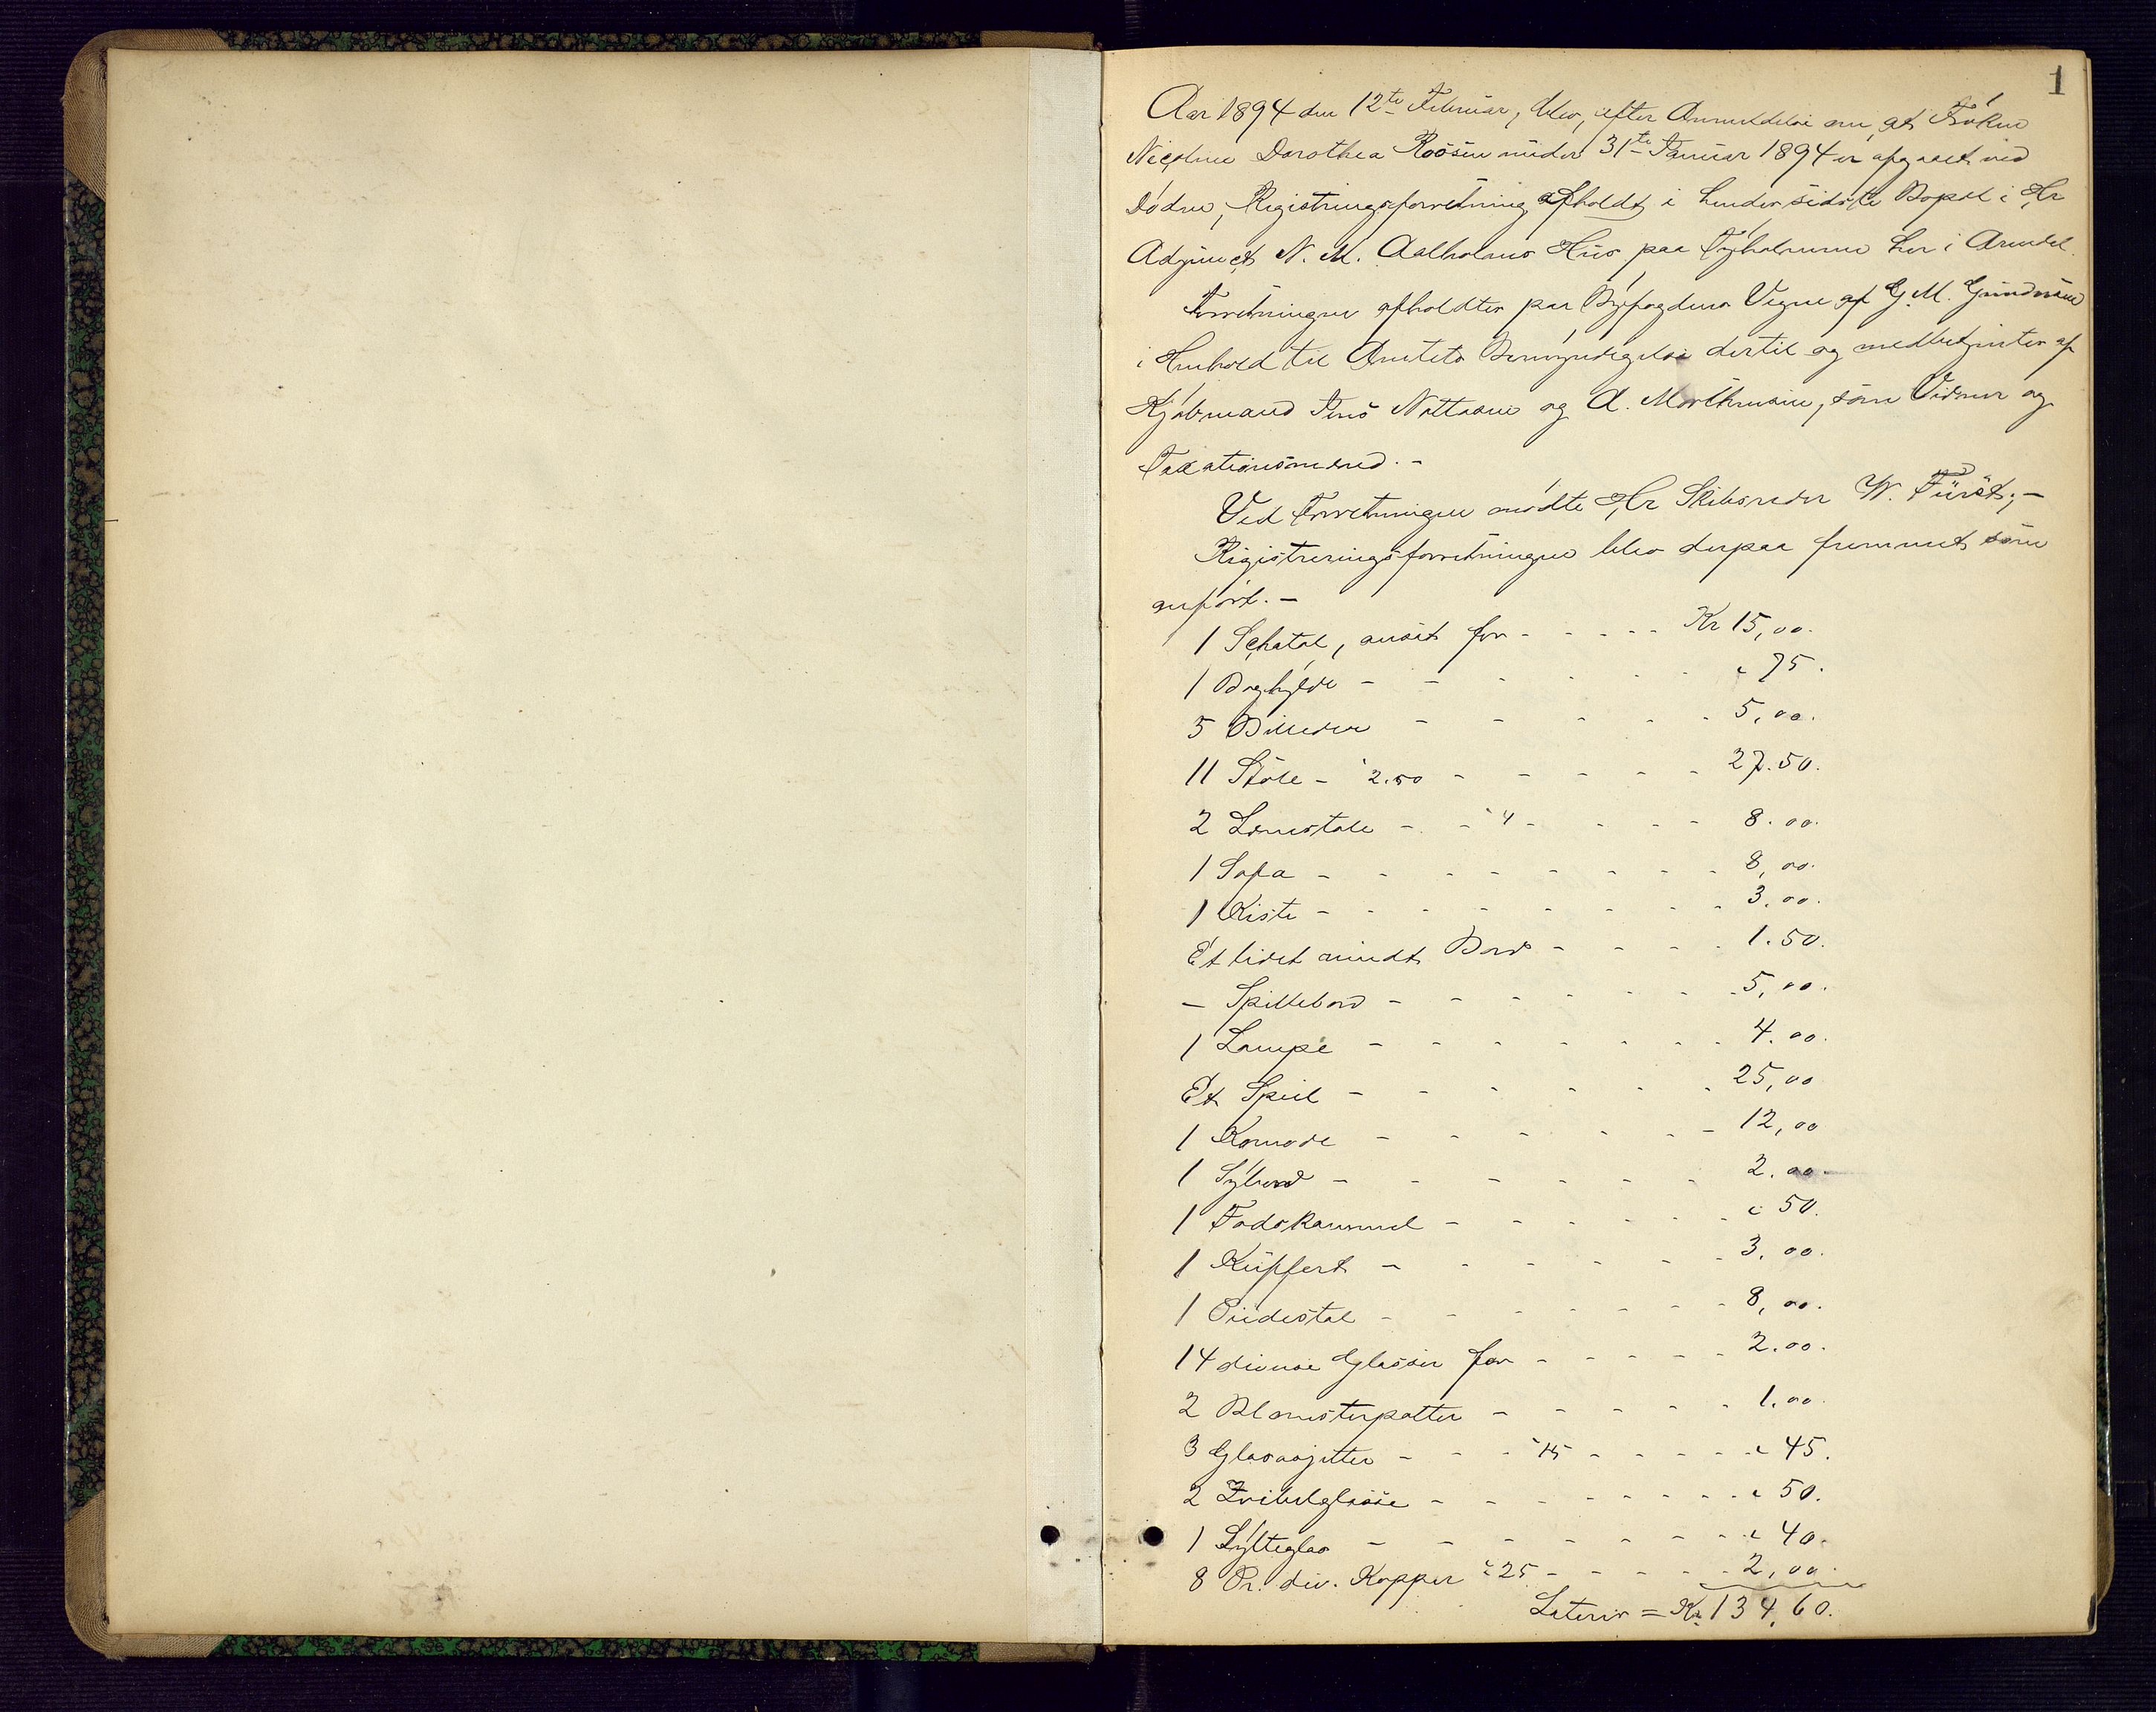 1
Aar 1894 den 12te Februar, blev, efter Anmeldelse om, at Frøken
Nicoline Dorothea Roosen under 31te Januar 1894 er afgaaet ved
Døden, Registreringsforretning afholdt i hendes sidste Bopæl i Hr
Adjunct N. M. Aalholms Hus paa Tyholmen her i Arendal.
Forretningen afholdtes paa Byfogdens Vegne af G. M. Gundersen
i Henhold til Amtets Bemyndigelse dertil og medbetjentes af
Kjøbmænd Jens Nattaen og A. Morthensen, som Vidner og
Taxationsmænd. -
Ved Forretningen mødte Hr Skibsreder W. Fürst; -
Registreringsforretningen blev derpaa fremmet som
anført. -
1 Schatol, anset for - - - - - Kr 15,00.
1 Boghylde - - - - - - " 75.
5 Billeder - - - - - 5,00.
11 Stole - " 2.50 - - - - - 27.50.
2 Lænestole - - " 4 - - - - 8.00.
1 Sofa - - - - - - - - 8,00.
1 Kiste - - - - - - - - 3.00.
Et lidet rundt Bord - - - - 1.50.
- Spillebord - - - - - - - 5,00.
1 Lampe - - - - - - - - 4.00.
Et Speil - - - - - - - 25,00
1 Komode - - - - - - - 12,00
1 Sybord - - - - - - - 2.00.
1 Fodskammel - - - - - - " 50.
1 Kuffert - - - - - - 3.00.
1 Piedestal - - - - - - - 8,00.
14 diverse Glasser for - - - - - 2.00.
2 Blomsterpotter - - - - - 1.00.
3 Glasasjetter - - - " 15 - - - - - " 45.
2 Zvibelglasse - - - - - - - - " 50.
1 Sylteglas - - - - - - - " 40.
8 Pr. div. Kopper " 25 - - - - - 2,00.
Lateris = Kr. 134,60.